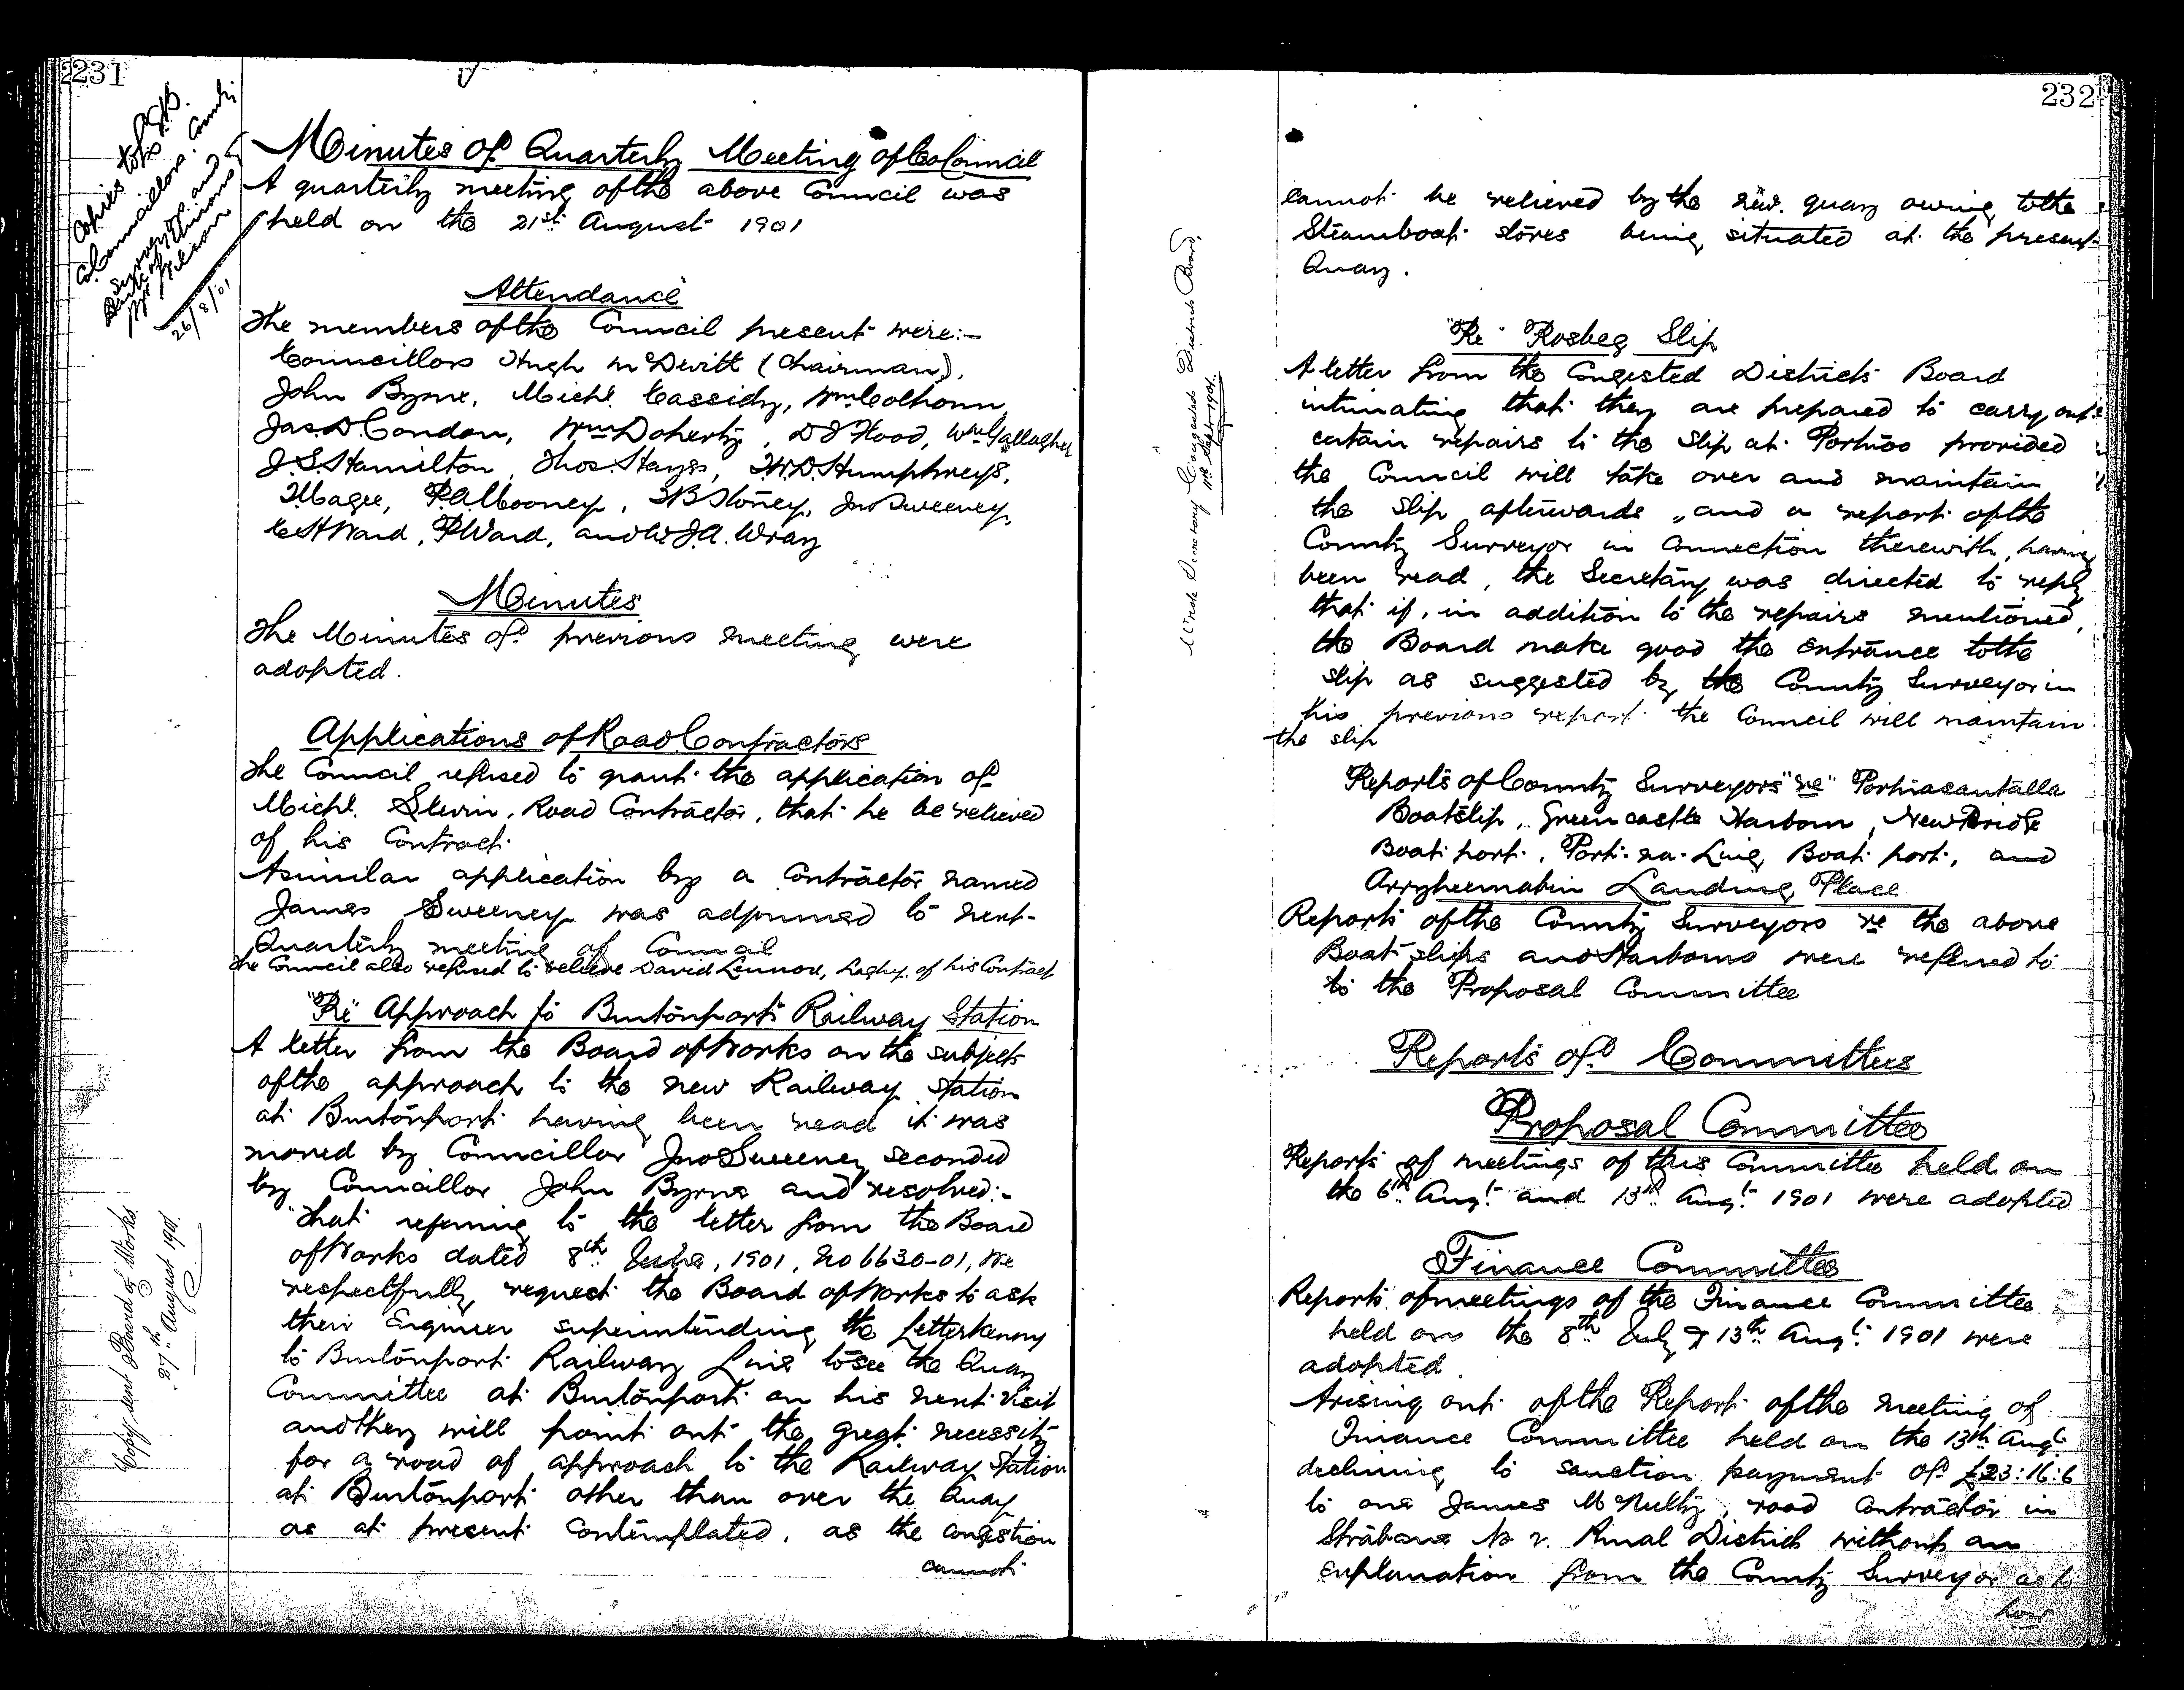 231
Copies to L.G.B.
Co. Councillors. County
Surveyors. and
Clerks of Unions
Mr Wilson
26/8/01
Minutes of Quarterly Meeting of Co Council
A quarterly meeting of the above Council was
held on the 21st August 1901
Attendance
The members of the Council present were:-
Councillors Hugh McDevitt (Chairman),
John Byrne, Michl. Cassidy, Wm Colhoun,
Jas. D. Condon, Wm Doherty, D J Flood, Wm Gallagher
J. S. Hamilton, Thos. Hayes, T. W. D. Humphreys,
Magee, P. A. Mooney, T B Stoney, Jno Sweeney,
C H Ward, P Ward, and J. A. Wray
Minutes
The Minutes of previous meeting were
adopted.
Applications of Road Contractors
The Council refused to grant the application of
Michl. Slevin, Road Contractor, that he be relieved
of his Contract.
A similar application by a Contractor named
James Sweeney was adjourned to next
Quarterly meeting of Council
The Council also refused to relieve David Lennox, Laghy, of his Contract
"Re" Approach to Burtonport Railway Station
A letter from the Board of Works on the subject
of the approach to the new Railway Station
at Burtonport having been read it was
moved by Councillor Jno Sweeney seconded
by Councillor John Byrne and resolved:-
"That referring to the letter from the Board
of Works dated 8th 1901, No 6630-01, We
respectfully request the Board of Works to ask
their Engineer superintending the Letterkenny
to Burtonport Railway Line to see the Quay
Committee at Burtonport on his next visit
and they will point out the great necessity
for a road of approach to the Railway Station
at Burtonport other than over the Quay
as at present contemplated, as the congestion
cannot
Copy sent Board of Works
27th August 1901.
232
cannot be relieved by the new quay owing to the
Steamboat stores being situated at the present
Quay.
"Re" Rosbeg Slip
A letter from the Congested Districts Board
intimating that they are prepared to carry out
certain repairs to the Slip at Portnoo provided
the Council will take over and maintain
the slip afterwards, and a report of the
County Surveyor in connection therewith, having
been read, the Secretary was directed to reply
that if, in addition to the repairs mentioned,
the Board make good the entrance to the
slip as suggested by the County Surveyor in
his previous report the Council will maintain
the slip
Wrote Secretary Congested Districts Board,
Sept 1901.
Reports of County Surveyors "re" Portnasantalla
Boatslip, Greencastle Harbour, New Bridge
Boat port, Port-na-Ling Boat port, and
Arryheernabin Landing Place
Reports of the County Surveyors re the above
Boat slips and Harbours were referred to
to the Proposal Committee
Reports of Committees
Proposal Committee
Reports of meetings of this Committee held on
the 6th Augt. and 13th Augt. 1901 were adopted
Finance Committee
Reports of meetings of the Finance Committee
held on the 8th July & 13th Augt. 1901 were
adopted.
Arising out of the Report of the meeting of
Finance Committee held on the 13th Augt
declining to sanction payment of £23:16:6
to one James McNulty, road contractor in
Strabane No 2. Rural District without an
explanation from the County Surveyor as to
how